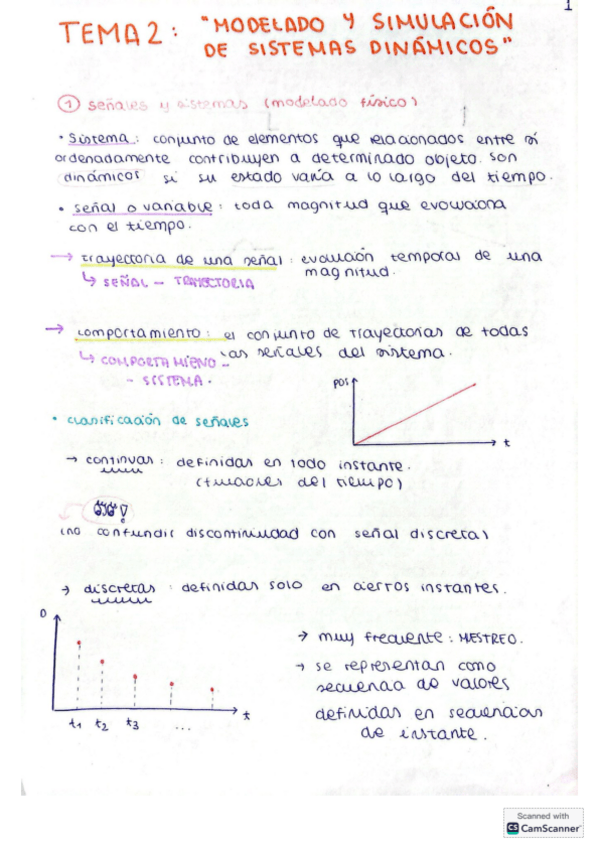 1
TEMA 2: "MODELADO Y SIMULACIÓN
DE SISTEMAS DINÁMICOS"
① señales y sistemas (modelado físico)
• Sistema: conjunto de elementos que relacionados entre sí
ordenadamente contribuyen a determinado objeto. Son
dinámicos si su estado varía a lo largo del tiempo.
• señal o variable: toda magnitud que evoluciona
con el tiempo.
→ trayectoria de una señal: evolución temporal de una
magnitud.
↳ SEÑAL - TRAYECTORIA
→ comportamiento: el conjunto de trayectorias de todas
las señales del sistema.
↳ COMPORTAMIENO -
- SISTEMA.
pos
t
• clasificación de señales
→ continuas: definidas en todo instante.
(funciones del tiempo)
(no confundir discontinuidad con señal discreta)
→ discretas: definidas solo en ciertos instantes.
D
t1 t2 t3 ... t
→ muy frecuente: MUESTREO.
→ se representan como
secuencia de valores
definidas en secuencias
de instante.
Scanned with
CS CamScanner